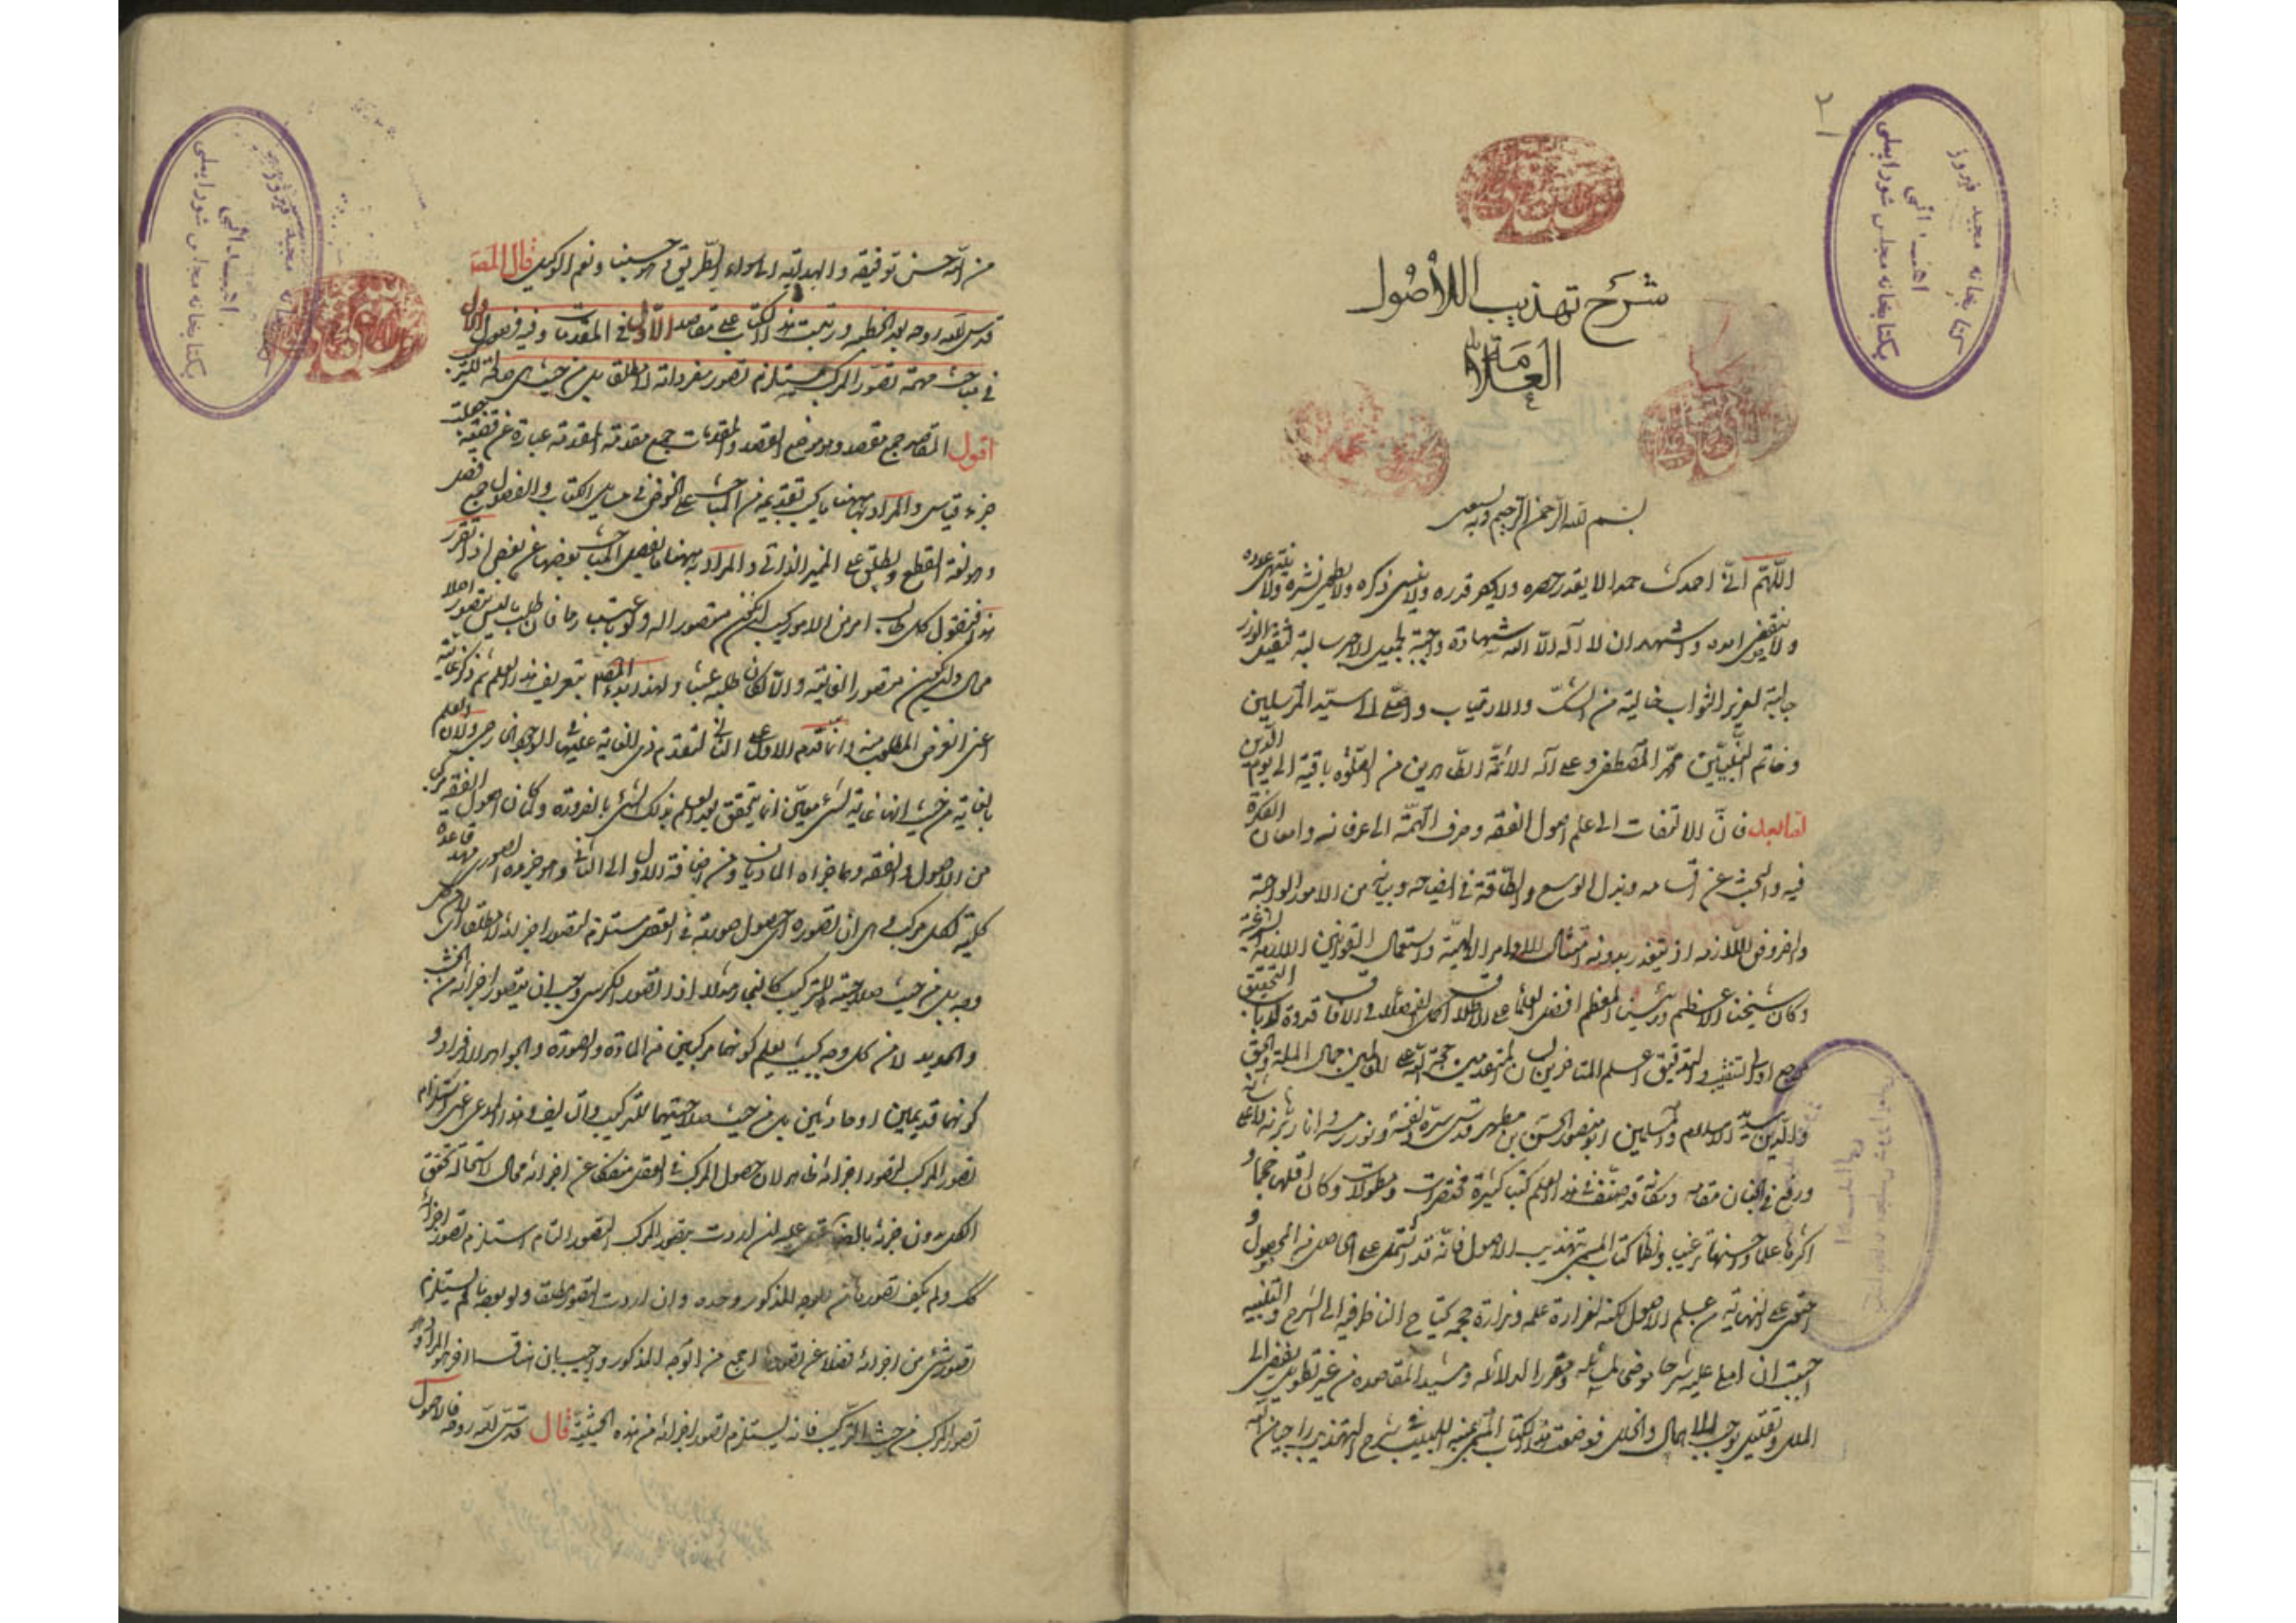 شرح تهذيب الاصول
العلامة
بسم الله الرحمن الرحيم وبه نستعين
اللهم انى احمدك حمدا لا يقدر حصره ولا قدره ولا ينسى ذكره ولا يطوى نشره ولا ينتهى عدده
ولا ينقضى امده واشهد ان لا اله الا الله شهادة
جالبة لعزيز الثواب خالية من الشك والارتياب واصلى على سيد المرسلين
وخاتم النبيين محمد المصطفى وعلى آله الائمة الطاهرين من صلوة باقية الى يوم الدين
اما بعد فان الالتفات الى علم اصول الفقه وصرف الهمة الى عرفانه وامعان الفكرة
فيه والبحث عن اقسامه وبذل الوسع والطاقة فى ايضاحه وبيانه من الامور الواجبة
والفروض اللازمة اذ يتعذر بدونه امتثال الاوامر الالهية واستعمال القوانين الشرعية
وكان شيخنا الاعظم ورئيسنا المعظم افضل العلماء على الاطلاق اكمل الفضلاء فى الآفاق قدوة ارباب التحقيق
والتدقيق اعلم المتأخرين لسان المتقدمين حجة الله على العالمين جمال الملة والحق
والدين سديد الاسلام والمسلمين ابو منصور الحسن بن مطهر قدس الله نفسه ونور رمسه
ورفع فى الجنان مقامه ومكانه قد صنف فى هذا العلم كتبا كثيرة مختصرات ومطولات وكان اقلها حجما و
اكثرها علما واحسنها ترتيبا ونظما كتابه المسمى بتهذيب الاصول فانه قد اشتمل على الحاصل من المحصول و
احتوى على النهاية من علم الاصول لكنه لغزارة علمه ونزارة حجمه يحتاج الناظر فيه الى الشرح والتنبيه
احببت ان املى عليه شرحا موضحا لمسائله ومقررا لدلائله ومشيدا لمقاصده من غير تطويل يفضى الى
الملل وتقليل يوجب الاهمال والخلل فوضعت هذا الكتاب المسمى بمنية اللبيب فى شرح التهذيب راجيا من الله
من الله حسن توفيقه والهداية الى سواء الطريق فهو حسبنا ونعم الوكيل قال المصنف
قدس الله روحه بعد الخطبة ورتبت هذا الكتاب على مقاصد الاول فى المقدمات وفيه فصول الاول
فى مباحث مهمة تصور المركب يستلزم تصور مفرداته لا مطلقا بل من حيث هى صالحة للتركيب
اقول المقاصد جمع مقصد وهو موضع القصد والمقدمات جمع مقدمة والمقدمة عبارة عن قضية جعلت
جزء قياس والمراد بها ههنا ما يجب تقديمه من المباحث على الخوض فى مسائل الكتاب والفصول جمع فصل
وهو لغة القطع ويطلق على المميز الذاتى والمراد به ههنا ما يفصل المباحث بعضها عن بعض اذا تقرر
هذا فنقول كل طالب امر من الامور يجب ان يكون متصورا له ولو باعتبار ما فان طلب ما ليس بمتصور اصلا
محال وان يكون متصورا لغايته والا لكان طلبه عبثا ولهذا بدء المصنف بتعريف هذا العلم ثم ذكر غايته
اعنى الغرض المطلوب منه وانما قدم الاول على الثانى لتقدم ذى الغاية عليها فى الوجود الخارجى ولان العلم
بالغاية من حيث انها غاية لشئ معين انما يتحقق بعد العلم بذلك الشئ بالضرورة ولما كان اصول الفقه مركبا
من الاصول والفقه وهما جزءاه الماديان ومن اضافة الاول الى الثانى وهو جزءه الصورى مهد قاعدة
كلية لكل مركب هى ان تصوره اى حصول صورته فى العقل مستلزم لتصور اجزائه لا مطلقا اى من كل
وجه بل من حيث صلاحيته للتركيب كالنجار مثلا اذا تصور الكرسى وجب ان يتصور اجزائه من الخشب
والحديد لا من كل وجه كونهما مركبين من المادة والصورة والجواهر الافراد و
كونهما قديمين او حادثين بل من حيث صلاحيتهما للتركيب والتاليف وهذا المدعى اعنى استلزام
تصور المركب لتصور اجزائه ظاهر لان حصول المركب فى العقل منفكا عن اجزائه محال لاستحالة تحقق
الكل بدون جزئه بالضرورة عليه ان اردت بتصور المركب التصور التام استلزم تصور اجزائه
كك ولم يكف تصورها من الوجه المذكور وحده وان اردت التصور مطلقا ولو بوجه ما لم يستلزم
تصور شئ من اجزائه فضلا عن تصور اجمع من الوجه المذكور واجيب بان المراد هو
تصور المركب من حيث التركيب فانه يستلزم تصور اجزائه من هذه الحيثية قال قدس الله روحه فالاصول